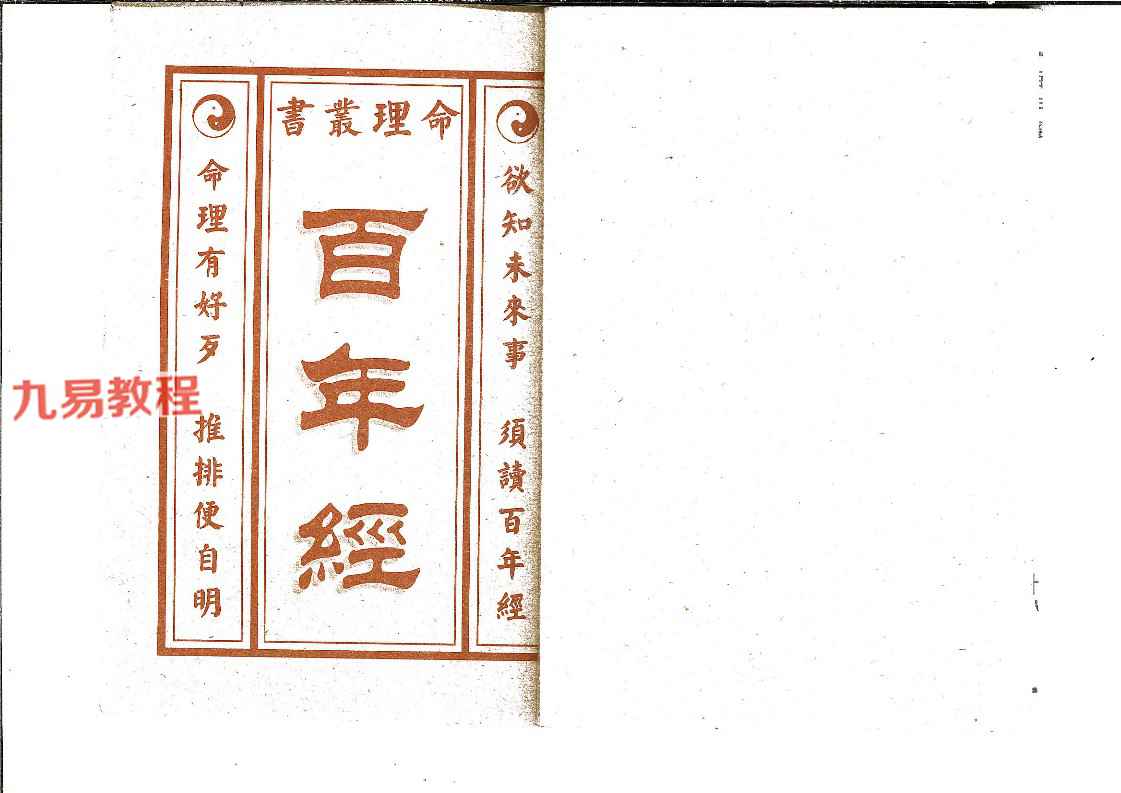 命理叢書
欲知未來事 須讀百年經
百年經
命理有好歹 推排便自明
九易教程